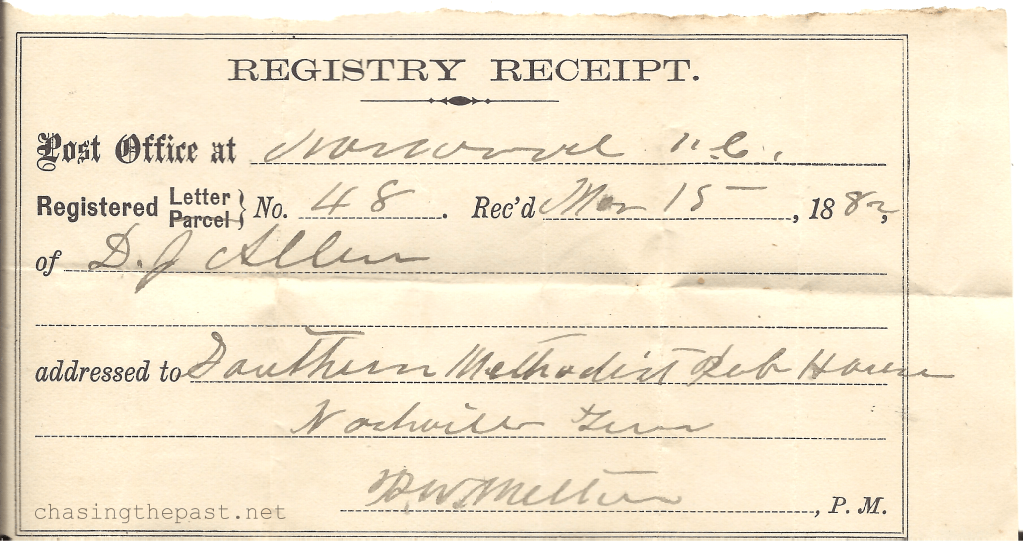 REGISTRY RECEIPT.
Post Office at Norwood N.C.,
Registered Letter } No. 48. Rec'd Mar 15, 1882,
Parcel
of D. J Allen
addressed to Southern Methodist Pub House
Nashville Tenn
Melton, P. M.
chasingthepast.net